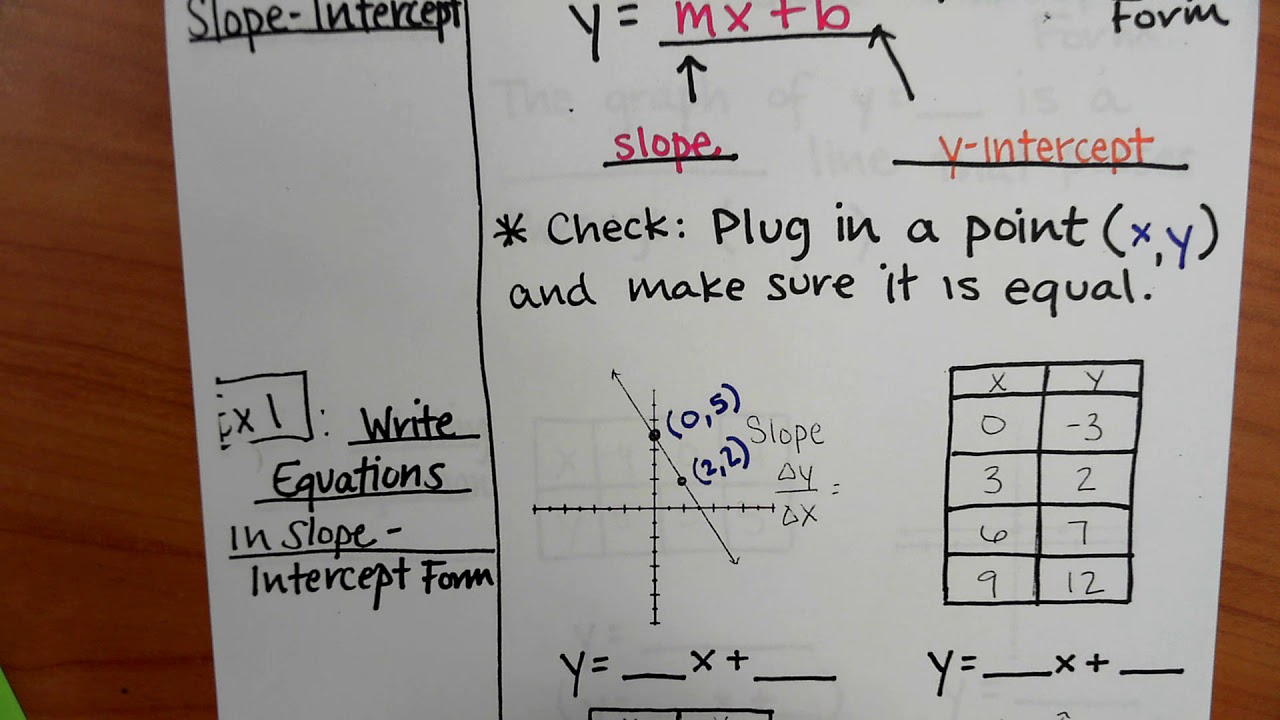 Slope-Intercept
y = mx + b
Form
slope
y-intercept
* Check: Plug in a point (x,y)
and make sure it is equal.
x 1 : Write
Equations
in Slope-
Intercept Form
(0,5)
(2,2)
Slope
Δy
Δx
=
x y
0 -3
3 2
6 7
9 12
y = ___ x + ___
y = ___ x + ___